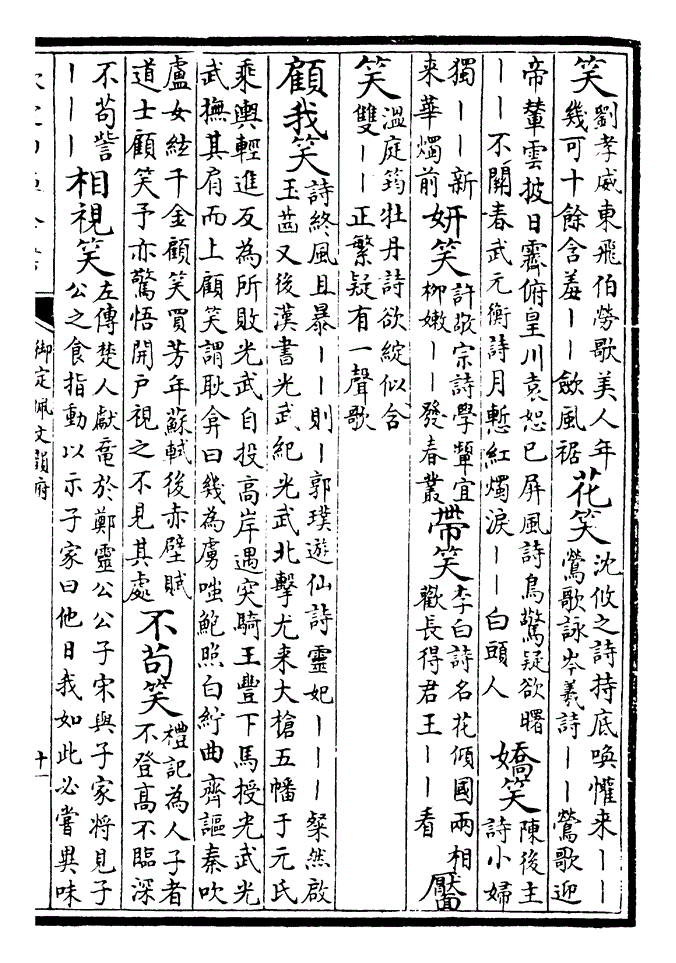 笑
劉孝威東飛伯勞歌美人年
幾可十餘含羞丨丨歛風裾
花笑
沈攸之詩持底喚懽來丨丨
鶯歌詠岑羲詩丨丨鶯歌迎
帝輦雲披日霽俯皇川袁恕己屏風詩鳥驚疑欲曙
丨丨不關春武元衡詩月慙紅燭淚丨丨白頭人
嬌笑
陳後主
詩小婦
獨丨丨新
來華燭前
妍笑
許敬宗詩學顰宜
柳嫩丨丨發春叢
帶笑
李白詩名花傾國兩相
歡長得君王丨丨看
靨
笑
溫庭筠牡丹詩欲綻似含
雙丨丨正繁疑有一聲歌
顧我笑
詩終風且暴丨丨則丨郭璞遊仙詩靈妃丨丨丨粲然啟
玉齒又後漢書光武紀光武北擊尤来大槍五幡于元氏
乘輿輕進反為所敗光武自投高岸遇突騎王豐下馬授光武光
武撫其肩而上顧笑謂耿弇曰幾為虜嗤鮑照白紵曲齊謳秦吹
盧女絃千金顧笑買芳年蘇軾後赤壁賦
道士顧笑予亦驚悟開戶視之不見其處
不苟笑
禮記為人子者
不登高不臨深
不苟訾
丨丨丨
相視笑
左傳楚人獻黿於鄭靈公公子宋與子家將見子
公之食指動以示子家曰他日我如此必嘗異味
御定佩文韻府
十一